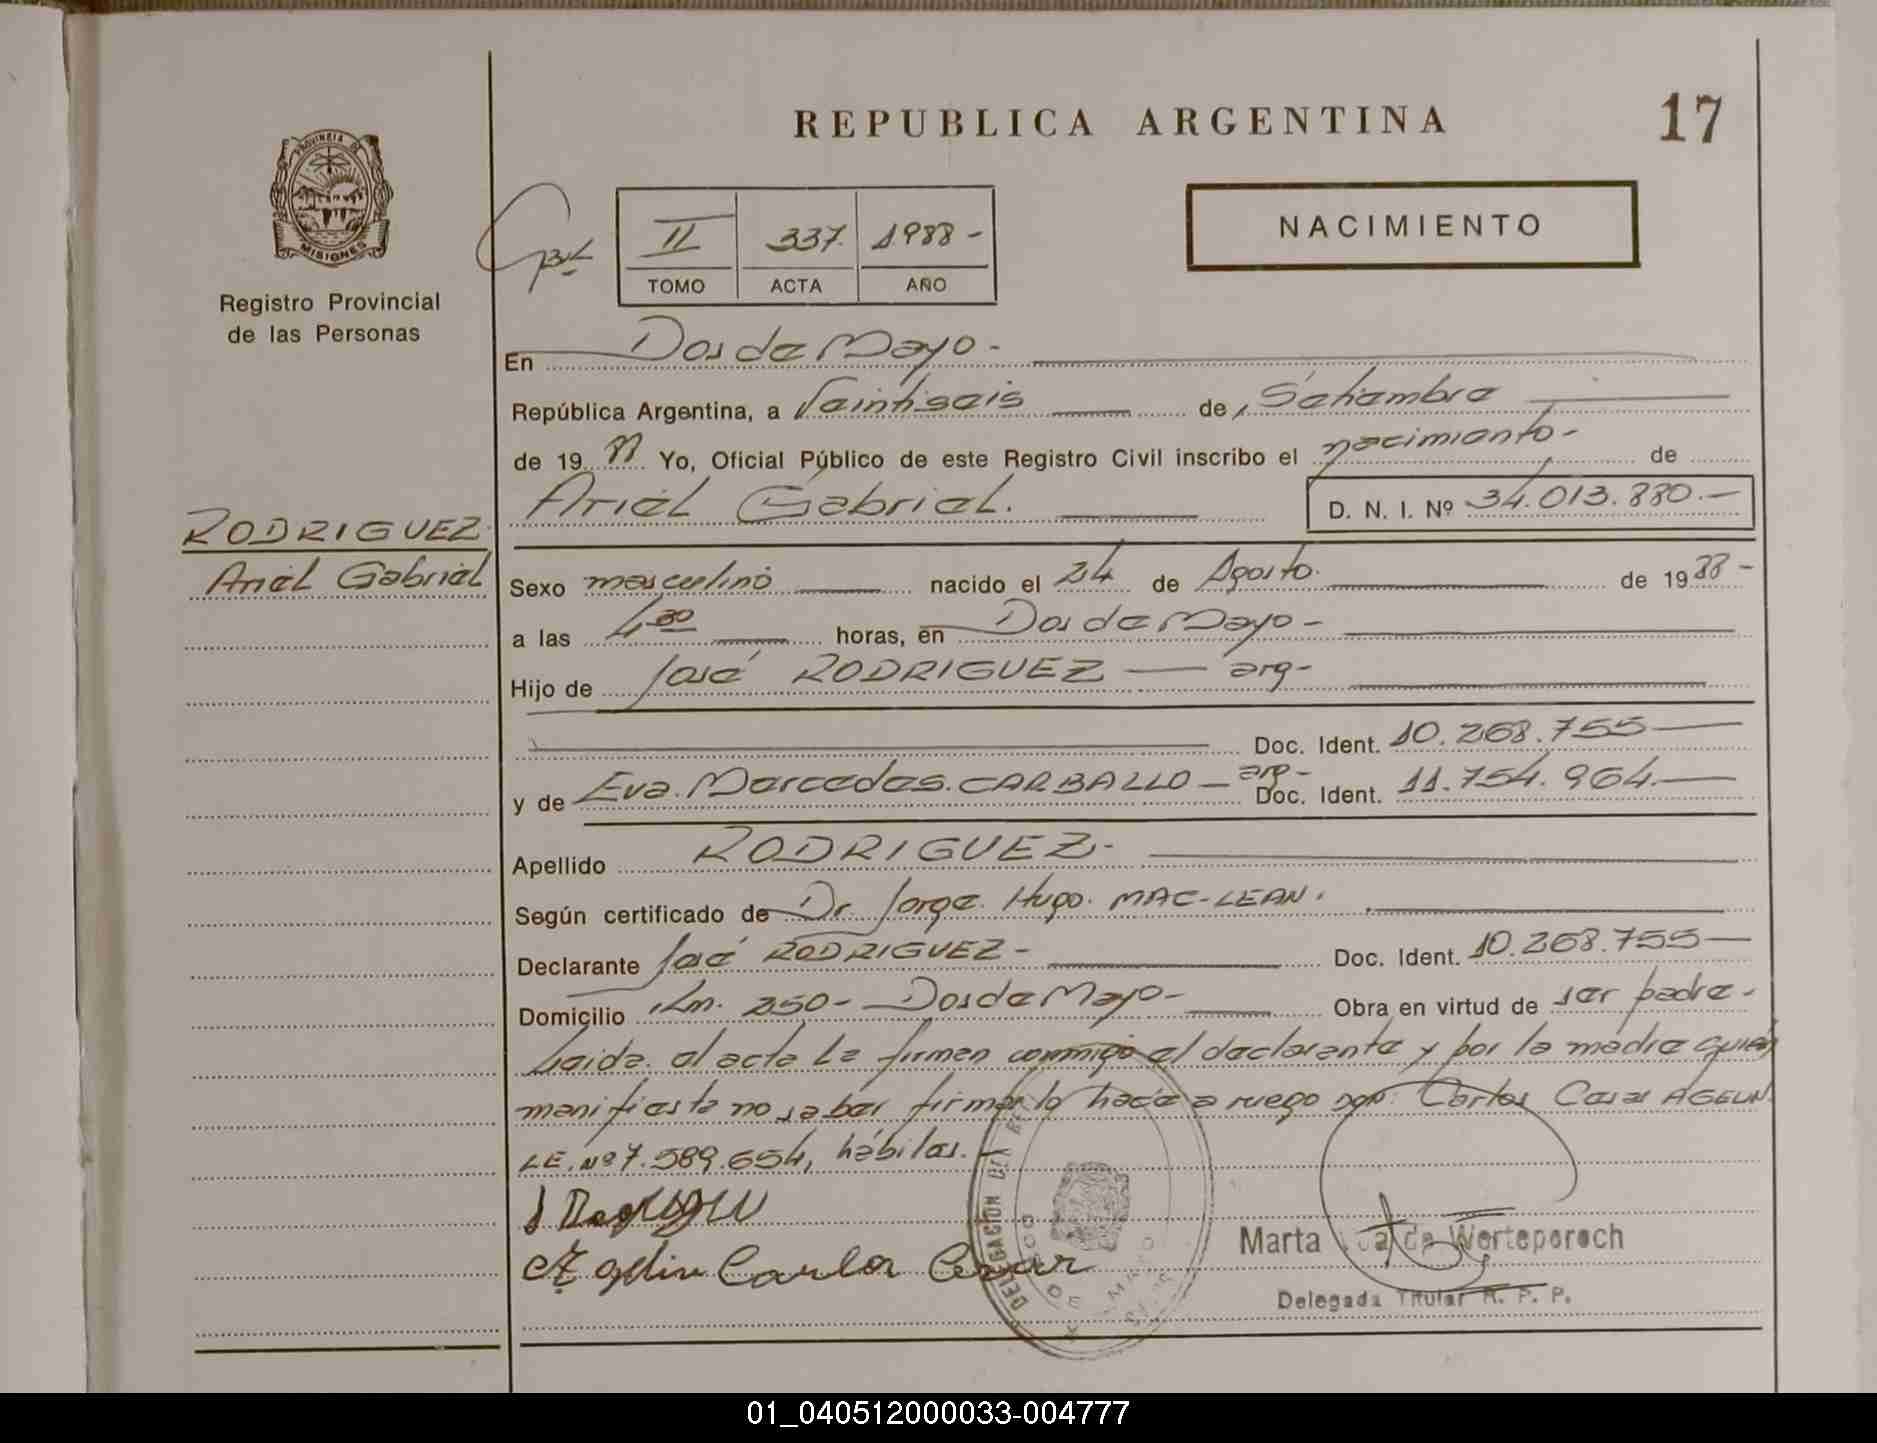 REPUBLICA ARGENTINA
17
PROVINCIA DE
MISIONES
Registro Provincial
de las Personas
II 337. 1988 -
TOMO ACTA AÑO
NACIMIENTO
En Dos de Mayo -
República Argentina, a Veintiseis de Setiembre
de 19 88 Yo, Oficial Público de este Registro Civil inscribo el nacimiento - de
Ariel Gabriel. D. N. I. Nº 34.013.880.-
RODRIGUEZ
Ariel Gabriel
Sexo masculino nacido el 24 de Agosto. de 19 88 -
a las 4,30 horas, en Dos de Mayo -
Hijo de José RODRIGUEZ — arg-
Doc. Ident. 10.268.755
y de Eva Mercedes CARBALLO - arg- Doc. Ident. 11.754.964.
Apellido RODRIGUEZ.-
Según certificado de Dr. Jorge Hugo MAC-LEAN.
Declarante José RODRIGUEZ - Doc. Ident. 10.268.755
Domicilio Km. 250- Dos de Mayo- Obra en virtud de ser padre-
Leida el acta la firman conmigo el declarante y por la madre quién
manifiesta no saber firmar lo hace a ruego don Carlos Cesar AGELIN
LE. Nº 7.589.654, hábiles.-
Agelin Carlos Cesar
Marta de Werteperoch
Delegada Titular R. P. P.
DELEGACION DEL
01_040512000033-004777